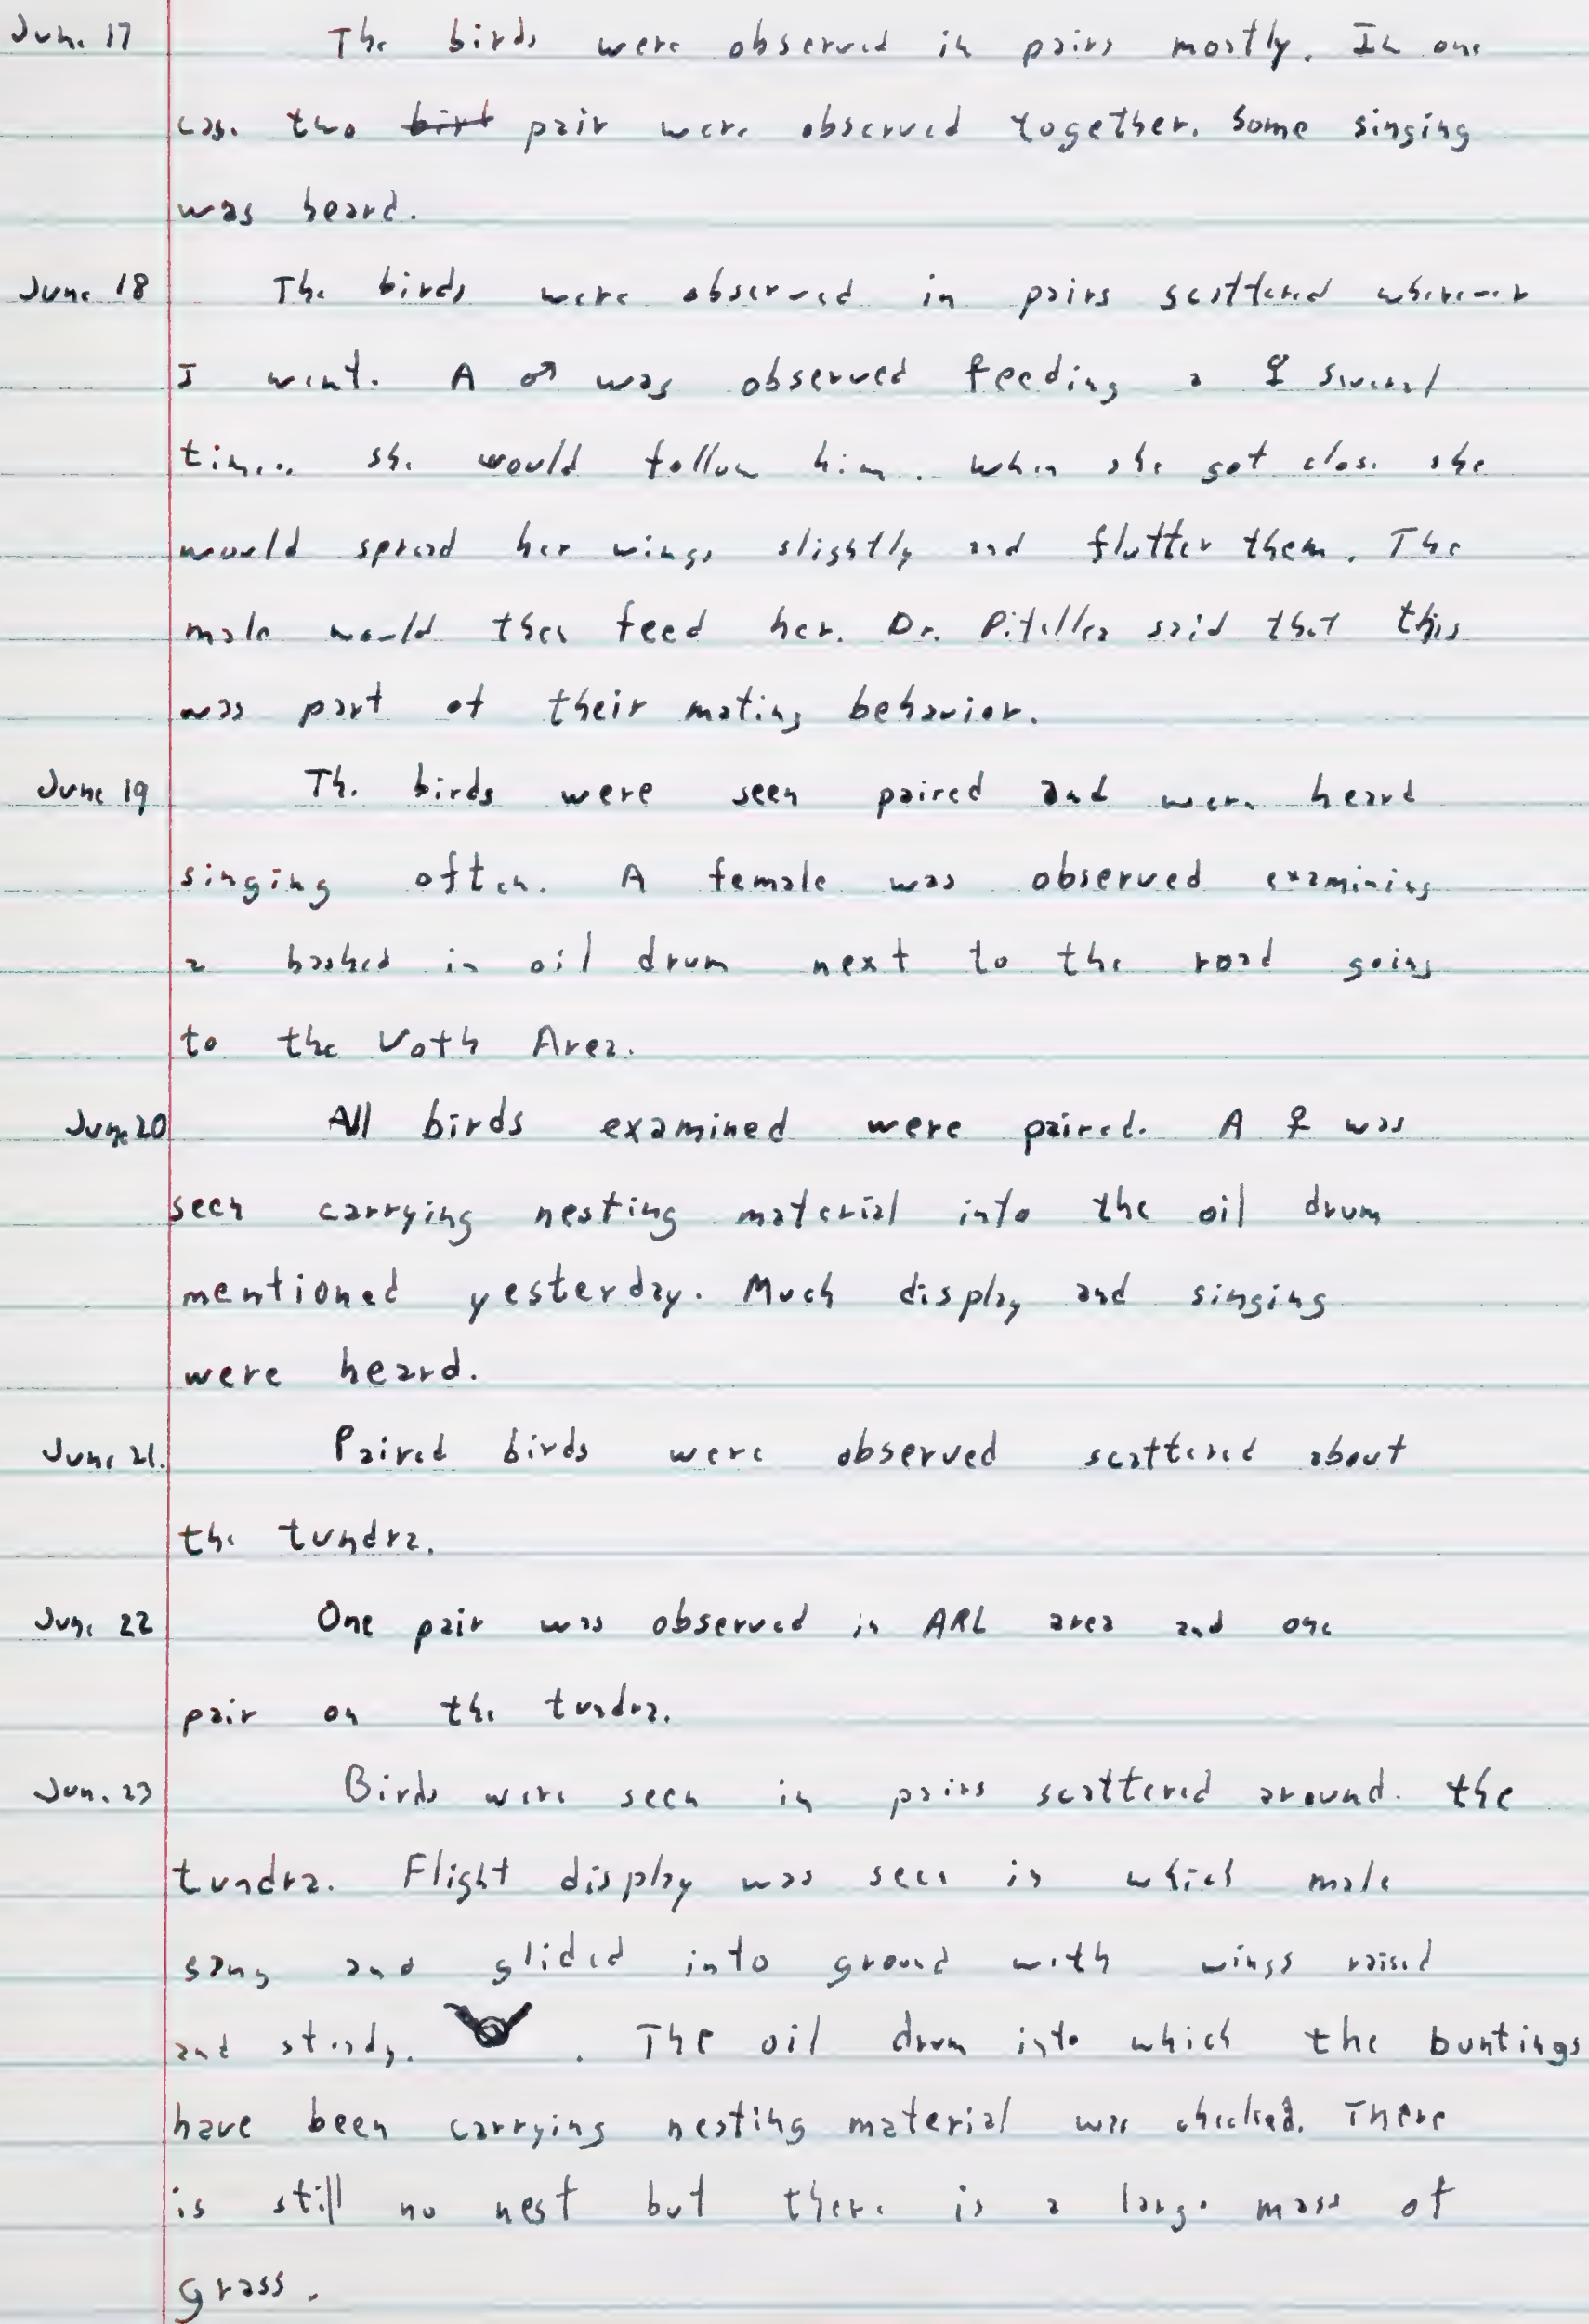 June 17 The birds were observed in pairs mostly. In one
case two birt pair were observed together. Some singing
was heard.
June 18 The birds were observed in pairs scattered wherever
I went. A ♂ was observed feeding a ♀ several
times. She would follow him. When she got close she
would spread her wings slightly and flutter them. The
male would then feed her. Dr. Pitelka said that this
was part of their mating behavior.
June 19 The birds were seen paired and were heard
singing often. A female was observed examining
a bashed in oil drum next to the road going
to the Voth Area.
June 20 All birds examined were paired. A ♀ was
seen carrying nesting material into the oil drum
mentioned yesterday. Much display and singing
were heard.
June 21. Paired birds were observed scattered about
the tundra.
June 22 One pair was observed in ARL area and one
pair on the tundra.
June 23 Birds were seen in pairs scattered around the
tundra. Flight display was seen in which male
sang and glided into ground with wings raised
and steady. . The oil drum into which the buntings
have been carrying nesting material was checked. There
is still no nest but there is a large mass of
grass.